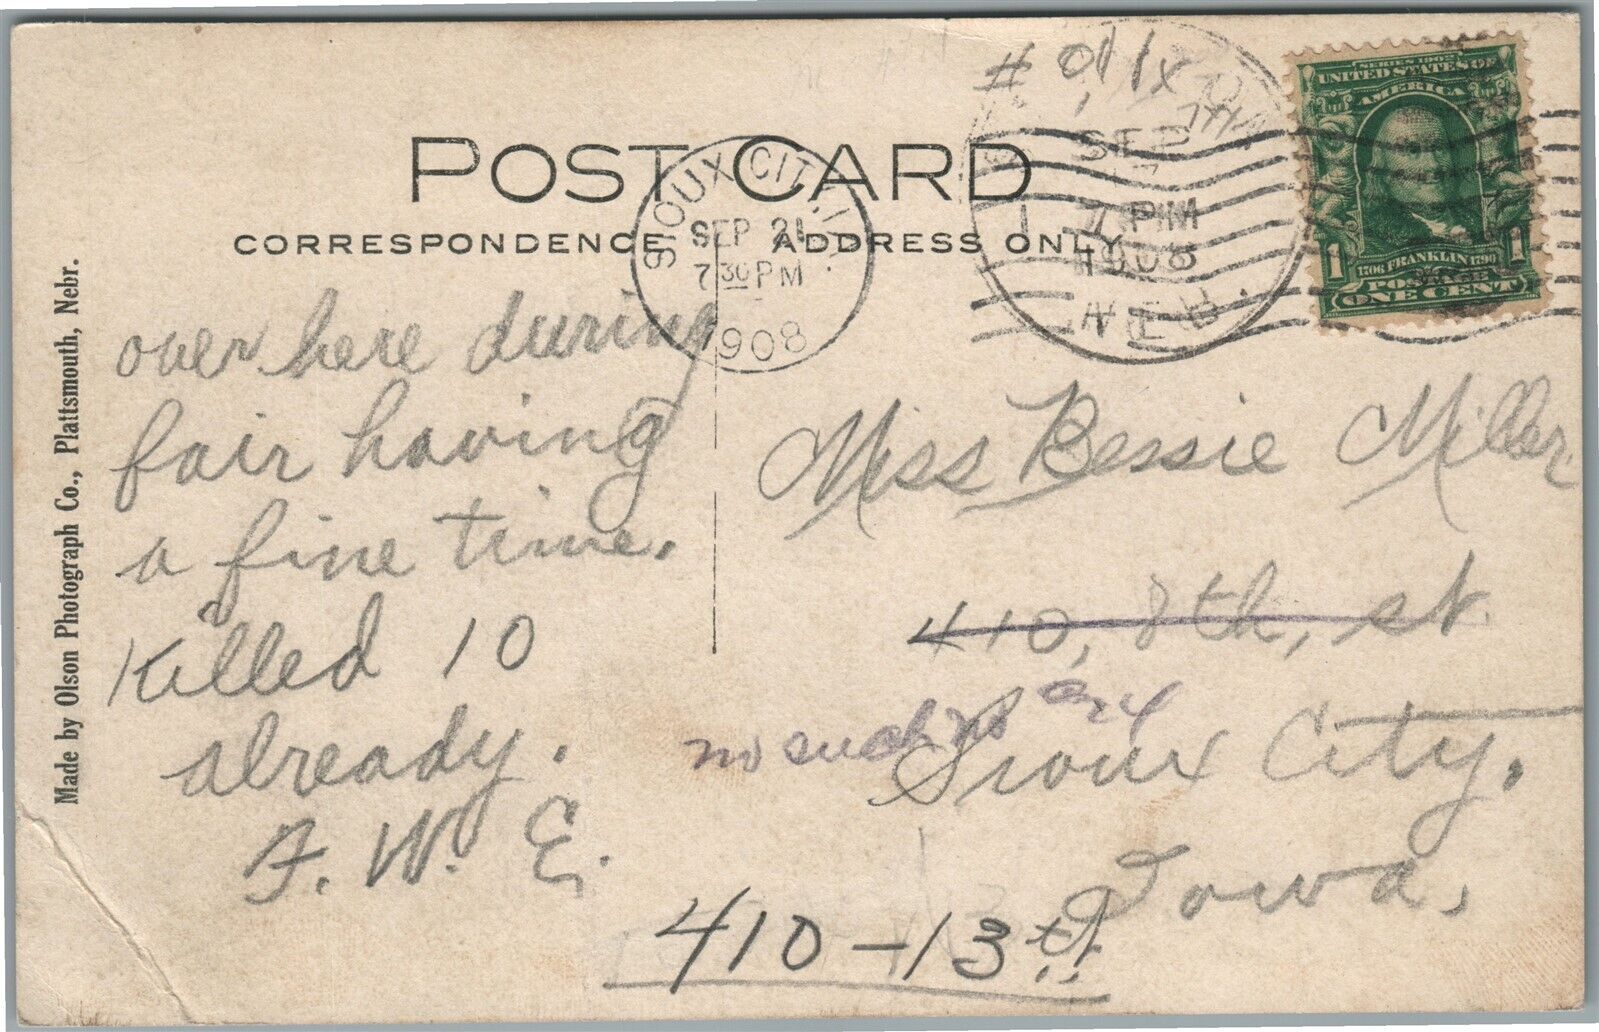 POST CARD
CORRESPONDENCE
ADDRESS ONLY
SIOUX CITY, IA.
SEP 21
7 30 PM
1908
SEP
1 PM
1908
NEB.
SERIES 1902
UNITED STATES OF
AMERICA
1706 FRANKLIN 1790
1 1
POSTAGE
ONE CENT
Made by Olson Photograph Co., Plattsmouth, Nebr.
over here during
fair having
a fine time.
Killed 10
already.
F. W. E.
Miss Bessie Miller
410, 8th, st
no such no
Sioux City,
Iowa,
410-13th